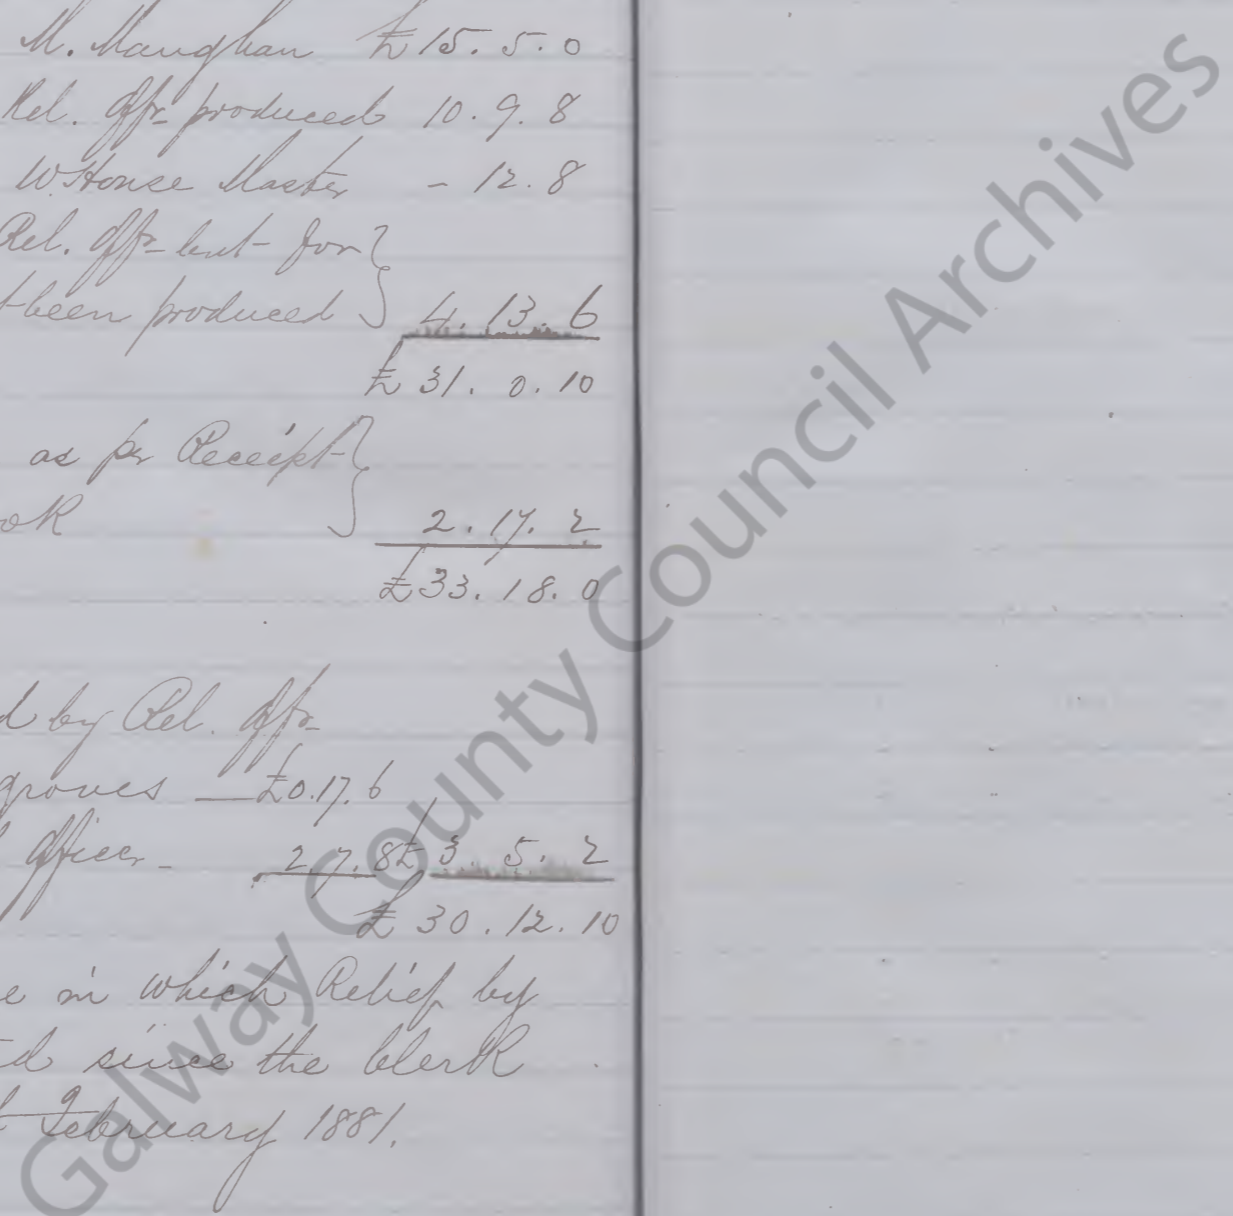 M. Maughan £15. 5. 0
Rel. Offr. produced 10. 9. 8
W.House Master - 12. 8
Rel. Offr but for
t been produced 4. 13. 6
£31. 0. 10
as per Receipt
ok 2. 17. 2
£33. 18. 0
d by Rel. Offr
groves — £0.17.6
Officer - 2.7.8 £3. 5. 2
£30. 12. 10
e in which Relief by
d since the Clerk
February 1881.
Galway County Council Archives